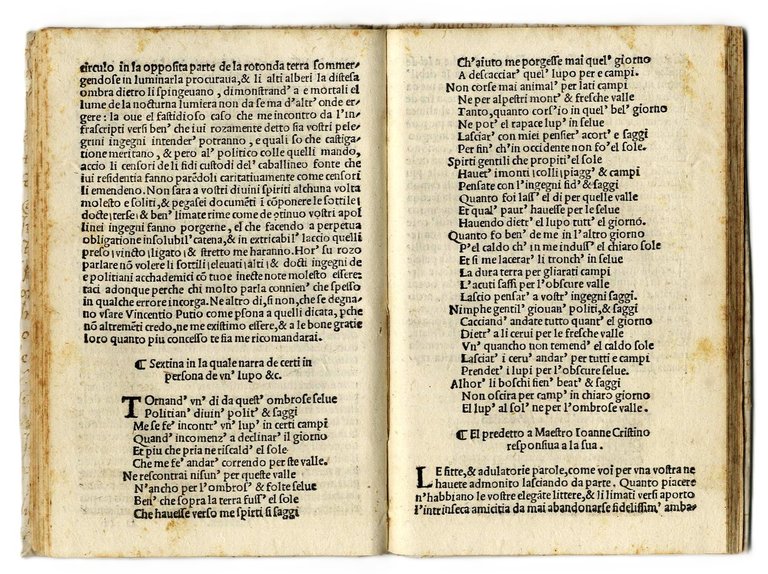 circulo in la opposita parte de la rotonda terra sommer-
gendose in luminarla procuraua,& li alti alberi la distesa
ombra dietro li spingeuano , dimonstrand' a e mortali el
lume de la nocturna lumiera non da se ma d'altr' onde er-
gere : la oue el fastidioso caso che me incontro da l'in-
frascripti versi ben' che iui rozamente detto sia vostri pele-
grini ingegni intender' potranno , e quali so che castiga-
tione meritano , & pero al' politico colle quelli mando,
accio li censori de li fidi custodi del' caballineo fonte che
iui residentia fanno parēdoli caritatiuamente como censori
li emendeno. Non sara a vostri diuini spiriti alchuna volta
molesto e soliti, & pegasei documēti i cōponere le sottile ı
docte ı terse ı & ben' limate rime come de ɔtinuo vostri apol
linei ingegni fanno porgerne, el che facendo a perpetua
obligatione insolubil' catena, & in extricabil' laccio quelli
preso ı vincto ı ligato ı & stretto me haranno. Hor' su rozo
parlare nō volere li sottili ı eleuati ı alti ı & docti ingegni de
e politiani acchademici cō tuoe inecte note molesto essere:
taci adonque perche chi molto parla connien' che spesso
in qualche errore incorga. Ne altro di, si non, che se degna-
no vsare Vincentio Putio come psona a quelli dicata, pche
nō altremēti credo, ne me existimo essere, & a le bone gratie
loro quanto piu concesso te fia me ricomandarai.
¶ Sextina in la quale narra de certi in
persona de vn' lupo &c.
TOrnand' vn' di da quest' ombrose selue
Politian' diuin' polit' & saggi
Me se fe' incontr' vn' lup' in certi campi
Quand' incomenz' a declinar' il giorno
Et piu che pria ne riscald' el sole
Che me fe' andar' correndo per ste valle.
Ne rescontrai nisun' per queste valle
N'ancho per l'ombros' & folte selue
Ben' che sopra la terra fuss' el sole
Che hauesse verso me spirti si saggi
Ch'aiuto me porgesse mai quel' giorno
A descacciar' quel' lupo per e campi.
Non corse mai animal' per lati campi
Ne per alpestri mont' & fresche valle
Tanto, quanto cors'io in quel' bel' giorno
Ne pot' el rapace lup' in selue
Lasciar' con miei pensier' acort' e saggi
Per fin' ch'in occidente non fo'el sole.
Spirti gentili che propiti'el sole
Hauet' i monti ı colli ı piagg' & campi
Pensate con l'ingegni fid' & saggi
Quanto foi lass' el di per quelle valle
Et qual' paur' hauesse per le selue
Hauendo dietr' el lupo tutt' el giorno.
Quanto fo ben' de me in l'altro giorno
P'el caldo ch' in me induss' el chiaro sole
Et si me lacerar' li tronch' in selue
La dura terra per gliarati campi
L'acuti sassi per l'obscure valle
Lascio pensar' a vostr' ingegni saggi.
Nimphe gentil' giouan' politi,& saggi
Cacciand' andate tutto quant' el giorno
Dietr' a li cerui per le fresche valle
Vn' quancho non temend' el caldo sole
Lasciat' i ceru' andar' per tutti e campi
Prendet' i lupi per l'obscure selue.
Alhor' li boschi fien' beat' & saggi
Non oscira per camp' in chiaro giorno
El lup' al sol' ne per l'ombrose valle.
¶ El predetto a Maestro Ioanne Cristino
responsiua a la sua.
LE fitte, & adulatorie parole, come voi per vna vostra ne
hauete admonito lasciando da parte. Quanto piacere
n'habbiano le vostre elegāte littere, & li limati versi aporto
l'intrinseca amicitia da mai abandonarse fidelissim' amba-